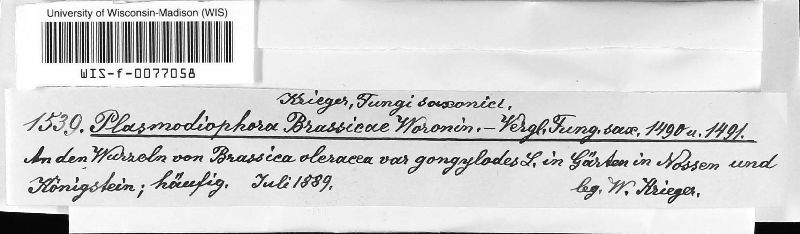 University of Wisconsin-Madison (WIS)
WIS-f-0077058
Krieger, Fungi saxonici.
1539. Plasmodiophora Brassicae Woronin. – Vergl. Fung. sax. 1490 u. 1491.
An den Wurzeln von Brassica oleracea var gongylodes L. in Gärten in Nossen und
Königstein; häufig. Juli 1889. lg. W. Krieger.